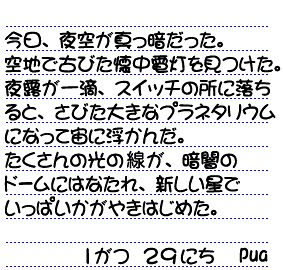 今日、夜空が真っ暗だった。
空地で古びた懐中電灯を見つけた。
夜露が一滴、スイッチの所に落ち
ると、さびた大きなプラネタリウム
になって宙に浮かんだ。
たくさんの光の線が、暗闇の
ドームにはなたれ、新しい星で
いっぱいかがやきはじめた。
1がつ 29にち Pua